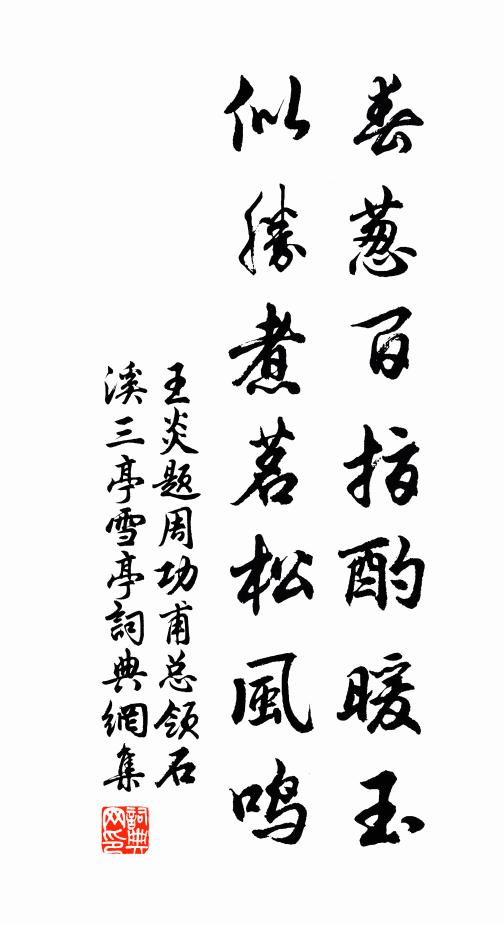 春葱百指酌暖玉
似勝煮茗松風鳴
王炎题周功甫总领石
溪三亭雪亭詞典網集
詞典网印